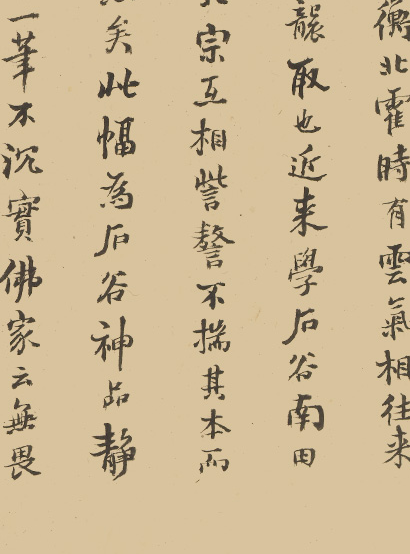 衡北霍時有雲氣相往来
襲取也近来學石谷南田
宗互相訾謷不揣其本而
矣此幅為石谷神品静
一筆不沉實佛家云無畏